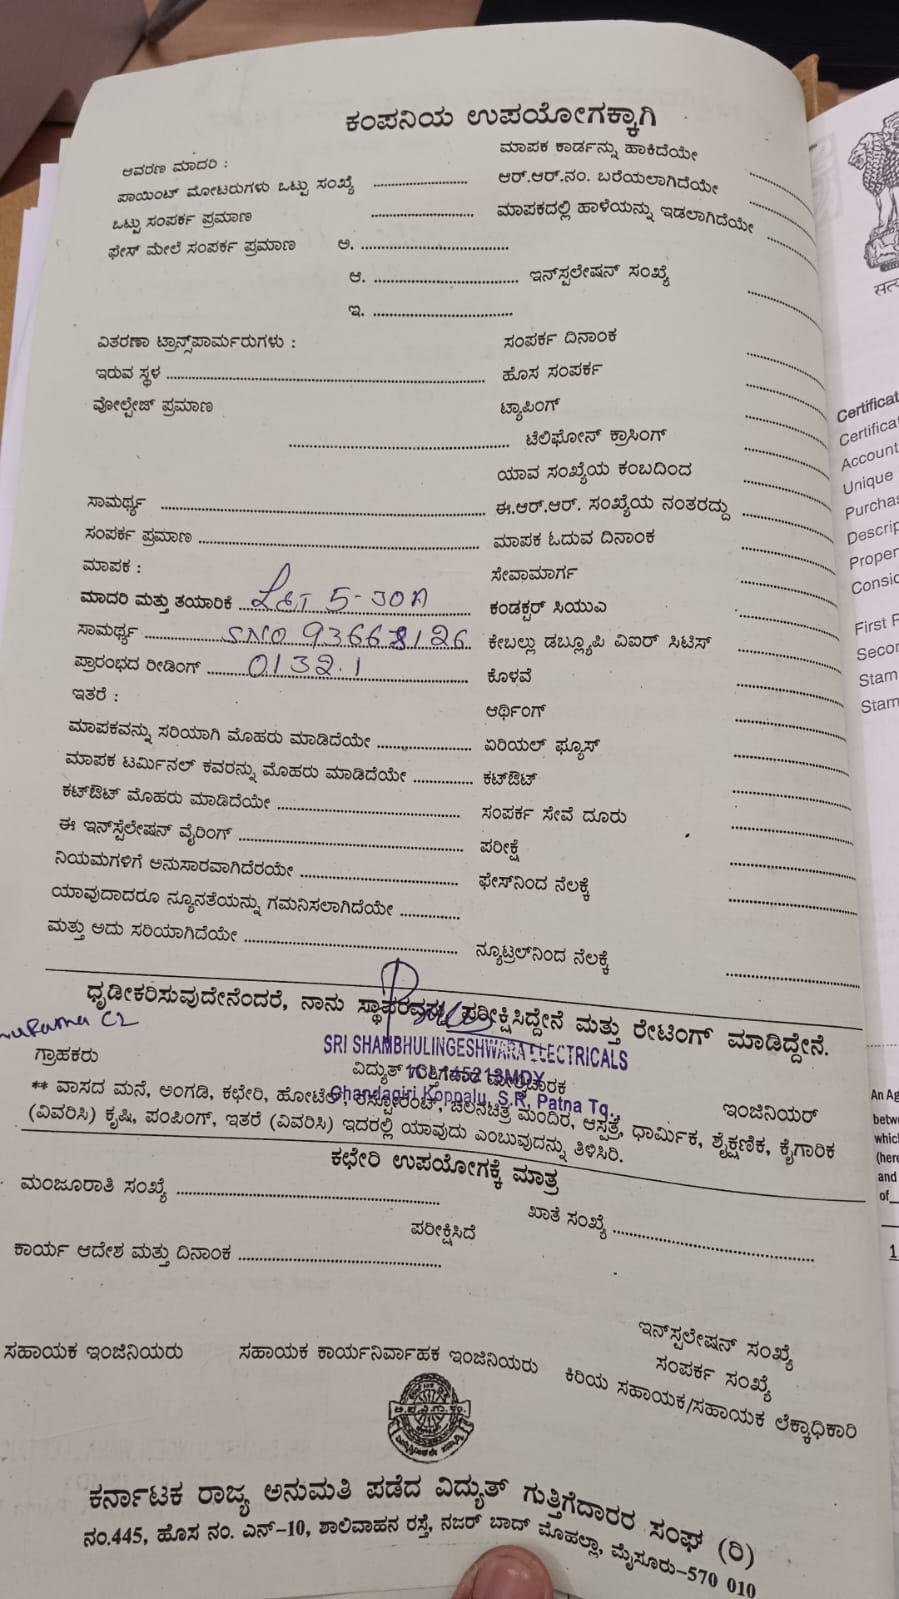 ಕಂಪನಿಯ ಉಪಯೋಗಕ್ಕಾಗಿ
ಆವರಣ ಮಾದರಿ :
ಮಾಪಕ ಕಾರ್ಡನ್ನು ಹಾಕಿದೆಯೇ
ಪಾಯಿಂಟ್ ಮೋಟರುಗಳು ಒಟ್ಟು ಸಂಖ್ಯೆ
ಆರ್.ಆರ್.ನಂ. ಬರೆಯಲಾಗಿದೆಯೇ
ಒಟ್ಟು ಸಂಪರ್ಕ ಪ್ರಮಾಣ
ಮಾಪಕದಲ್ಲಿ ಹಾಳೆಯನ್ನು ಇಡಲಾಗಿದೆಯೇ
ಫೇಸ್ ಮೇಲೆ ಸಂಪರ್ಕ ಪ್ರಮಾಣ ಅ.
ಆ. ಇನ್‌ಸ್ಪಲೇಷನ್ ಸಂಖ್ಯೆ
ಇ.
ವಿತರಣಾ ಟ್ರಾನ್ಸ್‌ಪಾರ್ಮರುಗಳು :
ಸಂಪರ್ಕ ದಿನಾಂಕ
ಇರುವ ಸ್ಥಳ
ಹೊಸ ಸಂಪರ್ಕ
ವೋಲ್ಟೇಜ್ ಪ್ರಮಾಣ
ಟ್ಯಾಪಿಂಗ್
ಟೆಲಿಫೋನ್ ಕ್ರಾಸಿಂಗ್
ಯಾವ ಸಂಖ್ಯೆಯ ಕಂಬದಿಂದ
ಸಾಮರ್ಥ್ಯ
ಈ.ಆರ್.ಆರ್. ಸಂಖ್ಯೆಯ ನಂತರದ್ದು
ಸಂಪರ್ಕ ಪ್ರಮಾಣ
ಮಾಪಕ ಓದುವ ದಿನಾಂಕ
ಮಾಪಕ :
ಸೇವಾಮಾರ್ಗ
ಮಾದರಿ ಮತ್ತು ತಯಾರಿಕೆ L&T 5-30A
ಕಂಡಕ್ಟರ್ ಸಿಯುವಿ
ಸಾಮರ್ಥ್ಯ SNO 93668126
ಕೇಬಲ್ಲು ಡಬ್ಲ್ಯೂಪಿ ವಿಐರ್ ಸಿಟಿಸ್
ಪ್ರಾರಂಭದ ರೀಡಿಂಗ್ 0132.1
ಕೊಳವೆ
ಇತರೆ :
ಆರ್ಥಿಂಗ್
ಮಾಪಕವನ್ನು ಸರಿಯಾಗಿ ಮೊಹರು ಮಾಡಿದೆಯೇ
ಏರಿಯಲ್ ಫ್ಯೂಸ್
ಮಾಪಕ ಟರ್ಮಿನಲ್ ಕವರನ್ನು ಮೊಹರು ಮಾಡಿದೆಯೇ
ಕಟ್‌ಔಟ್
ಕಟ್‌ಔಟ್ ಮೊಹರು ಮಾಡಿದೆಯೇ
ಸಂಪರ್ಕ ಸೇವೆ ದೂರು
ಈ ಇನ್‌ಸ್ಪೆಲೇಷನ್ ವೈರಿಂಗ್
ಪರೀಕ್ಷೆ
ನಿಯಮಗಳಿಗೆ ಅನುಸಾರವಾಗಿದೆರಯೇ
ಫೇಸ್‌ನಿಂದ ನೆಲಕ್ಕೆ
ಯಾವುದಾದರೂ ನ್ಯೂನತೆಯನ್ನು ಗಮನಿಸಲಾಗಿದೆಯೇ
ಮತ್ತು ಅದು ಸರಿಯಾಗಿದೆಯೇ
ನ್ಯೂಟ್ರಲ್‌ನಿಂದ ನೆಲಕ್ಕೆ
ಧೃಡೀಕರಿಸುವುದೇನೆಂದರೆ, ನಾನು ಸ್ಥಾವರವನ್ನು ಪರೀಕ್ಷಿಸಿದ್ದೇನೆ ಮತ್ತು ರೇಟಿಂಗ್ ಮಾಡಿದ್ದೇನೆ.
SRI SHAMBHULINGESHWARA ELECTRICALS
ಗ್ರಾಹಕರು
ವಿದ್ಯುತ್ ಗುತ್ತಿಗೆದಾರ ಮೇಲ್ವಿಚಾರಕ
ಇಂಜಿನಿಯರ್
Chandagiri Koppalu, S.R. Patna Tq.,
** ವಾಸದ ಮನೆ, ಅಂಗಡಿ, ಕಛೇರಿ, ಹೋಟೆಲ್, ರೆಸ್ಟೋರೆಂಟ್, ಚಲನಚಿತ್ರ ಮಂದಿರ, ಆಸ್ಪತ್ರೆ, ಧಾರ್ಮಿಕ, ಶೈಕ್ಷಣಿಕ, ಕೈಗಾರಿಕ
(ವಿವರಿಸಿ) ಕೃಷಿ, ಪಂಪಿಂಗ್, ಇತರೆ (ವಿವರಿಸಿ) ಇದರಲ್ಲಿ ಯಾವುದು ಎಂಬುವುದನ್ನು ತಿಳಿಸಿರಿ.
ಕಛೇರಿ ಉಪಯೋಗಕ್ಕೆ ಮಾತ್ರ
ಮಂಜೂರಾತಿ ಸಂಖ್ಯೆ
ಖಾತೆ ಸಂಖ್ಯೆ
ಪರೀಕ್ಷಿಸಿದೆ
ಕಾರ್ಯ ಆದೇಶ ಮತ್ತು ದಿನಾಂಕ
ಇನ್‌ಸ್ಪಲೇಷನ್ ಸಂಖ್ಯೆ
ಸಂಪರ್ಕ ಸಂಖ್ಯೆ
ಸಹಾಯಕ ಇಂಜಿನಿಯರು
ಸಹಾಯಕ ಕಾರ್ಯನಿರ್ವಾಹಕ ಇಂಜಿನಿಯರು
ಕಿರಿಯ ಸಹಾಯಕ/ಸಹಾಯಕ ಲೆಕ್ಕಾಧಿಕಾರಿ
ಕರ್ನಾಟಕ ರಾಜ್ಯ ಅನುಮತಿ ಪಡೆದ ವಿದ್ಯುತ್ ಗುತ್ತಿಗೆದಾರರ ಸಂಘ (ರಿ)
ನಂ.445, ಹೊಸ ನಂ. ಎನ್-10, ಶಾಲಿವಾಹನ ರಸ್ತೆ, ನಜರ್ ಬಾದ್ ಮೊಹಲ್ಲಾ, ಮೈಸೂರು-570 010
Certificat
Certifica
Account
Unique
Purchas
Descrip
Proper
Consid
First P
Secon
Stam
Stam
An Ag
betwe
which
(here
and
of
1.